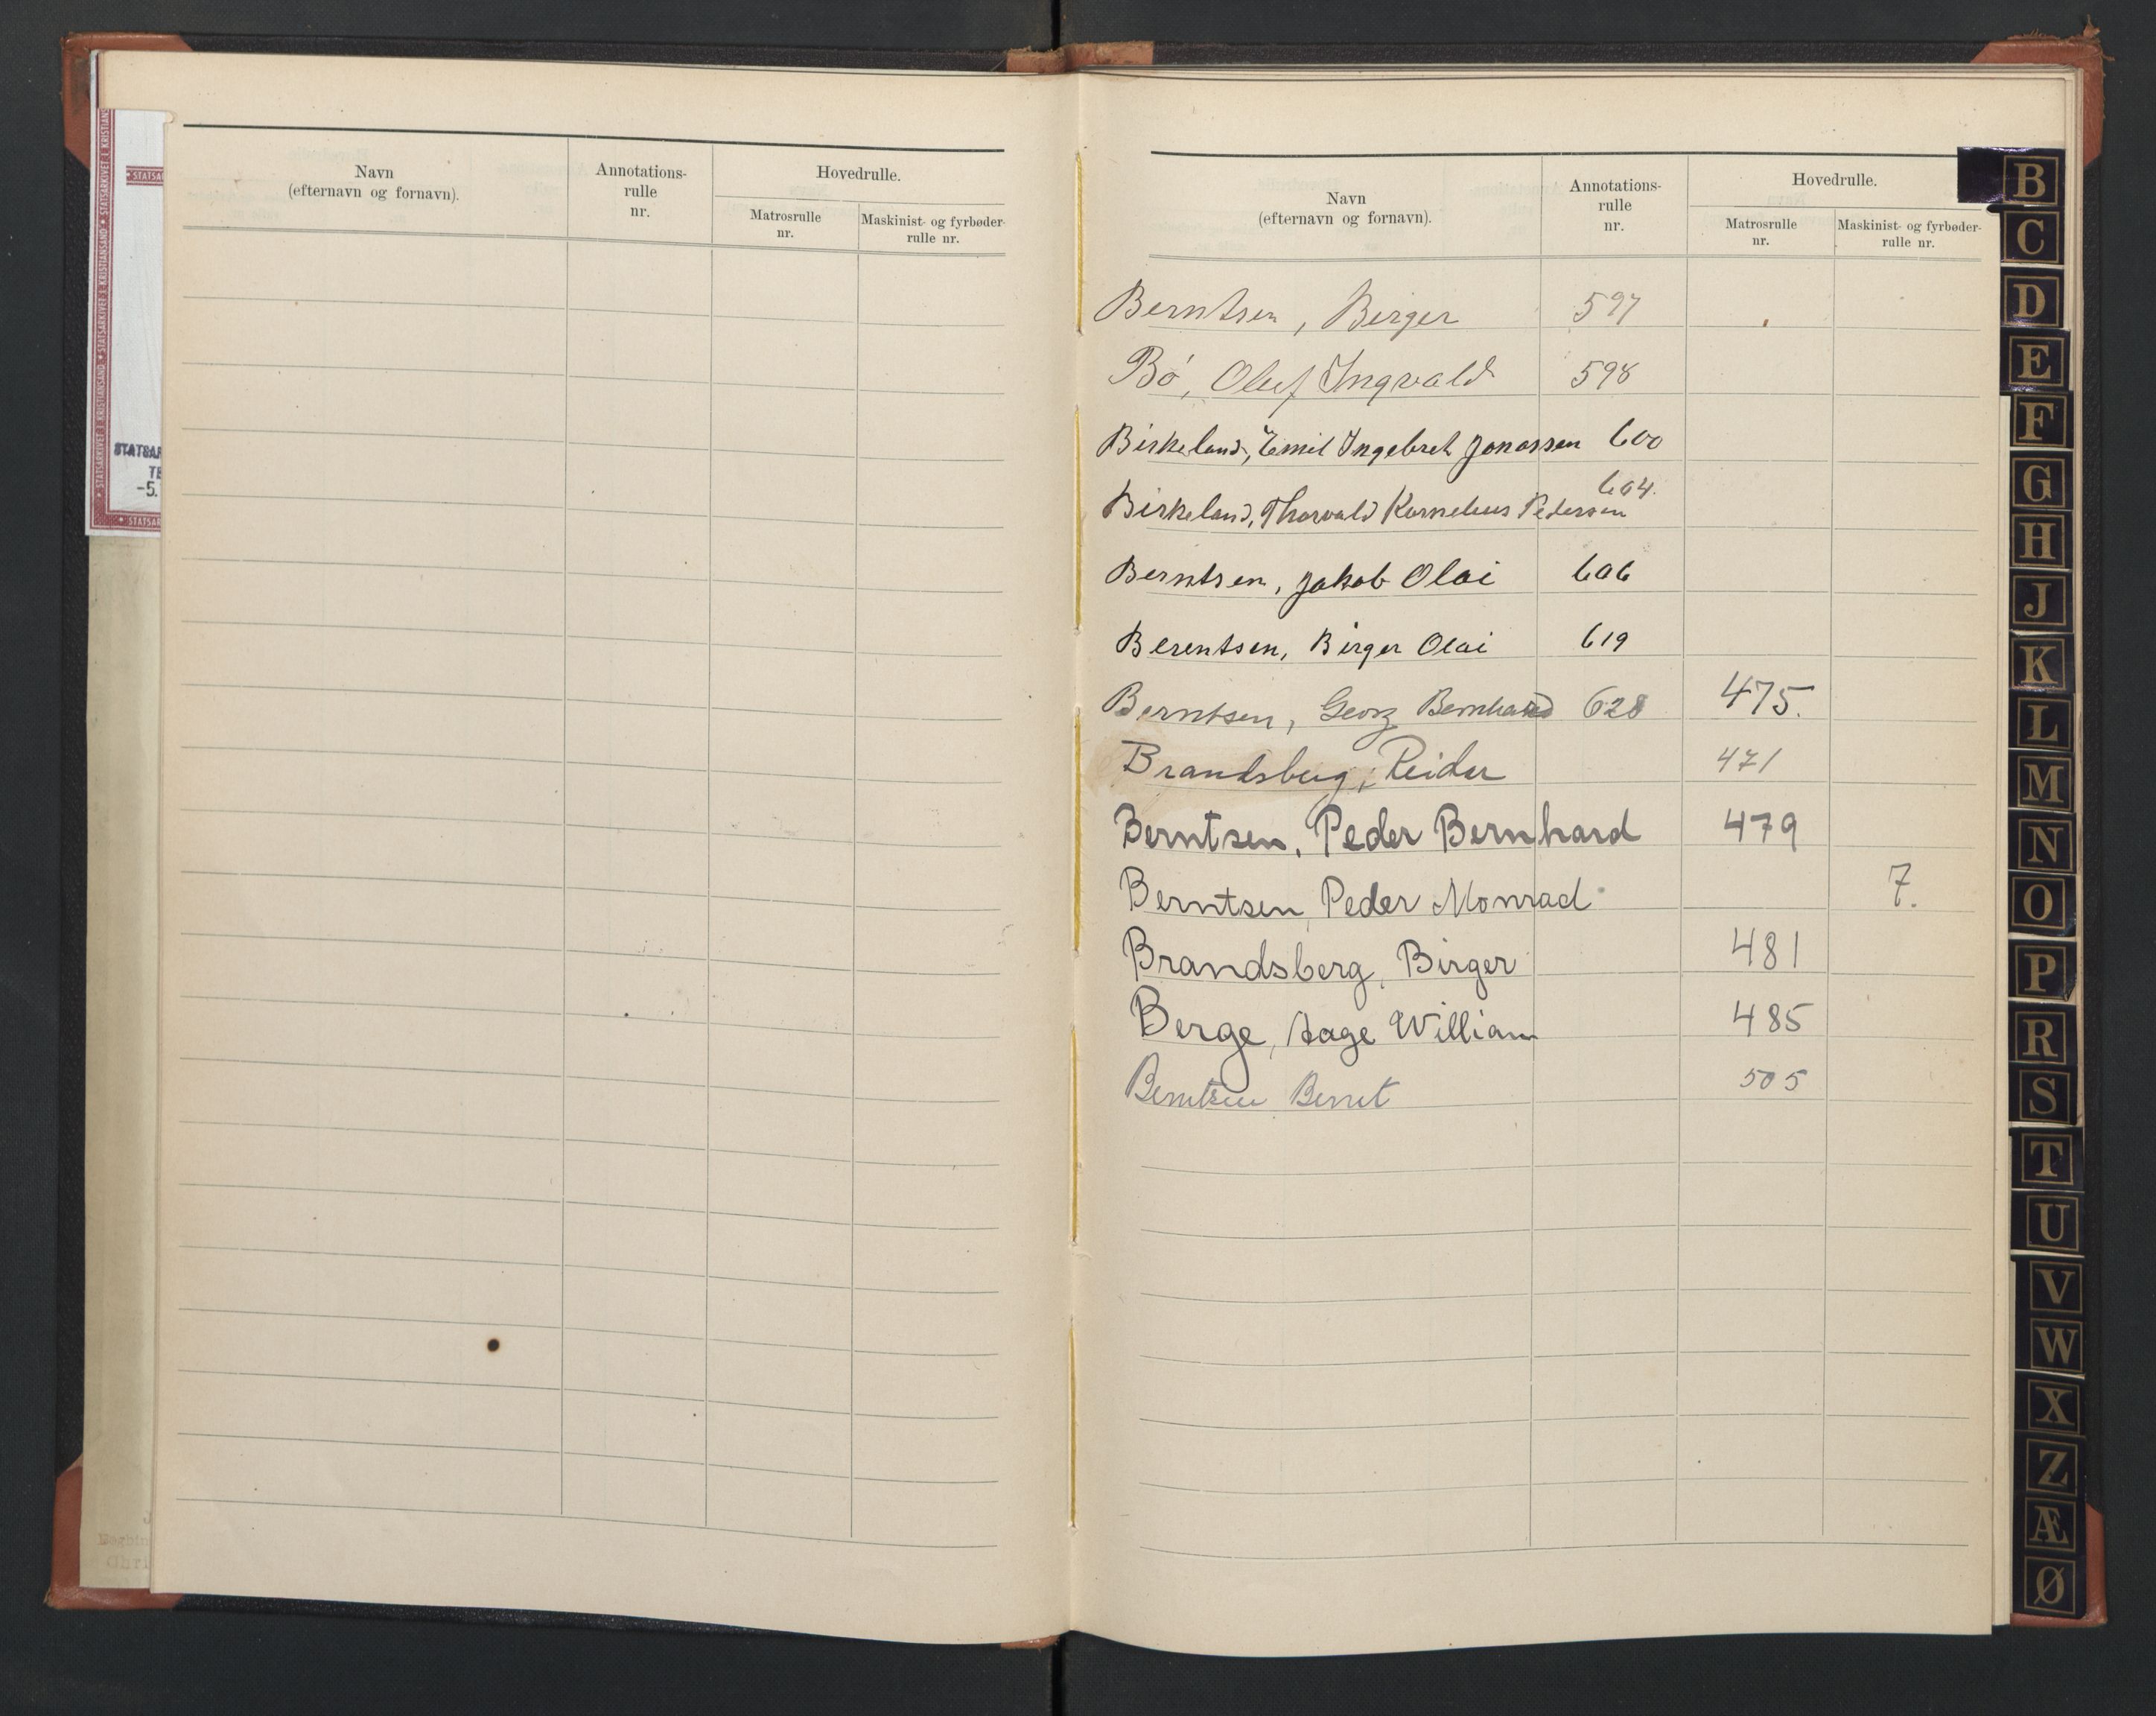 Navn
(efternavn og fornavn).
Annotations-
rulle
nr.
Hovedrulle.
Matrosrulle
nr.
Maskinist- og fyrbøder-
rulle nr.
STATSARKIVET I KRISTIANSAND • STATSARKIVET I KRISTIANSAND • STATSARKIVET I KRISTIANS
• STATSA
STATSAR
TE
-5.
• STATSAR
Navn
(efternavn og fornavn).
Annotations-
rulle
nr.
Hovedrulle.
Matrosrulle
nr.
Maskinist- og fyrbøder-
rulle nr.
Berntsen, Birger 597
Bö, Oluf Ingvald 598
Birkeland, Emil Ingebret Jonassen 600
Birkeland, Thorvald Kornelius Pedersen 604.
Berntsen, Jakob Olai 606
Berentsen, Birger Olai 619
Berntsen, Georg Bernhard 628 475.
Brandsberg, Reidar 471
Berntsen, Peder Bernhard 479
Berntsen, Peder Monrad 7.
Brandsberg, Birger 481
Berge, Aage William 485
Berntsen Bernt 505
B
C
D
E
F
G
H
J
K
L
M
N
O
P
R
S
T
U
V
W
X
Z
Æ
Ø